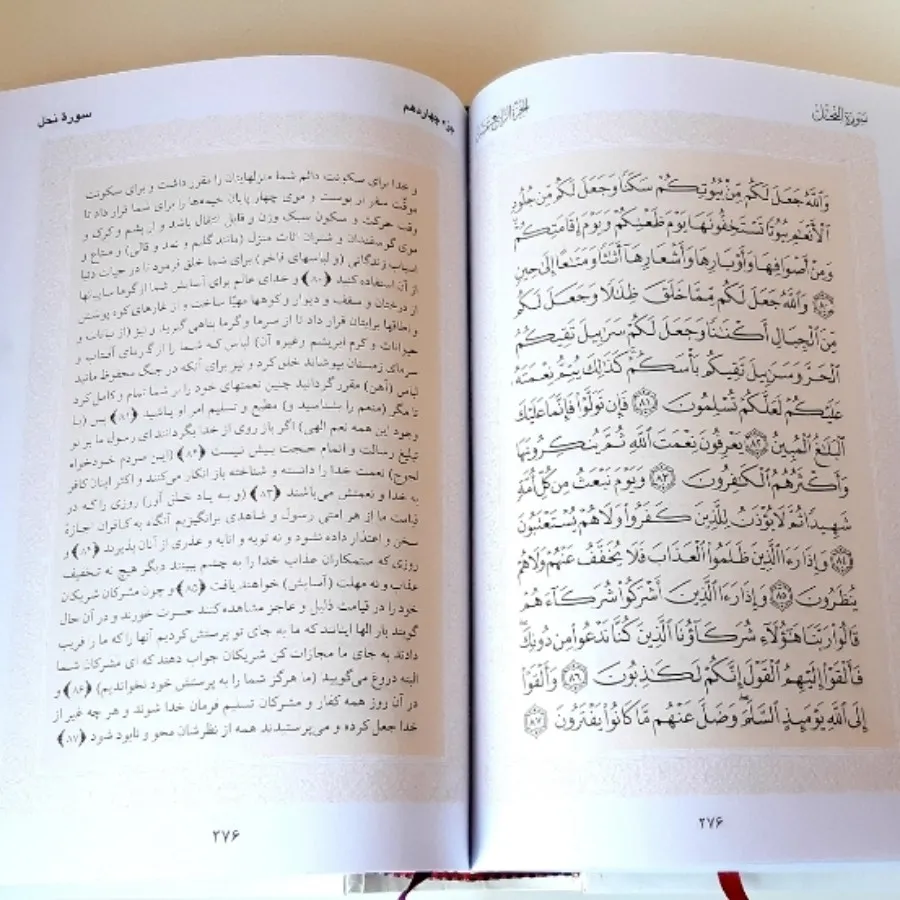 سورة النحل
الجزء الرابع عشر
وَٱللَّهُ جَعَلَ لَكُم مِّنۢ بُيُوتِكُمْ سَكَنًا وَجَعَلَ لَكُم مِّن جُلُودِ
ٱلْأَنْعَٰمِ بُيُوتًا تَسْتَخِفُّونَهَا يَوْمَ ظَعْنِكُمْ وَيَوْمَ إِقَامَتِكُمْ
وَمِنْ أَصْوَافِهَا وَأَوْبَارِهَا وَأَشْعَارِهَآ أَثَٰثًا وَمَتَٰعًا إِلَىٰ حِينٍ
﴿٨٠﴾ وَٱللَّهُ جَعَلَ لَكُم مِّمَّا خَلَقَ ظِلَٰلًا وَجَعَلَ لَكُم
مِّنَ ٱلْجِبَالِ أَكْنَٰنًا وَجَعَلَ لَكُمْ سَرَٰبِيلَ تَقِيكُمُ
ٱلْحَرَّ وَسَرَٰبِيلَ تَقِيكُم بَأْسَكُمْ كَذَٰلِكَ يُتِمُّ نِعْمَتَهُۥ
عَلَيْكُمْ لَعَلَّكُمْ تُسْلِمُونَ ﴿٨١﴾ فَإِن تَوَلَّوْا۟ فَإِنَّمَا عَلَيْكَ
ٱلْبَلَٰغُ ٱلْمُبِينُ ﴿٨٢﴾ يَعْرِفُونَ نِعْمَتَ ٱللَّهِ ثُمَّ يُنكِرُونَهَا
وَأَكْثَرُهُمُ ٱلْكَٰفِرُونَ ﴿٨٣﴾ وَيَوْمَ نَبْعَثُ مِن كُلِّ أُمَّةٍ
شَهِيدًا ثُمَّ لَا يُؤْذَنُ لِلَّذِينَ كَفَرُوا۟ وَلَا هُمْ يُسْتَعْتَبُونَ
﴿٨٤﴾ وَإِذَا رَءَا ٱلَّذِينَ ظَلَمُوا۟ ٱلْعَذَابَ فَلَا يُخَفَّفُ عَنْهُمْ وَلَا هُمْ
يُنظَرُونَ ﴿٨٥﴾ وَإِذَا رَءَا ٱلَّذِينَ أَشْرَكُوا۟ شُرَكَآءَهُمْ
قَالُوا۟ رَبَّنَا هَٰٓؤُلَآءِ شُرَكَآؤُنَا ٱلَّذِينَ كُنَّا نَدْعُوا۟ مِن دُونِكَ
فَأَلْقَوْا۟ إِلَيْهِمُ ٱلْقَوْلَ إِنَّكُمْ لَكَٰذِبُونَ ﴿٨٦﴾ وَأَلْقَوْا۟
إِلَى ٱللَّهِ يَوْمَئِذٍ ٱلسَّلَمَ وَضَلَّ عَنْهُم مَّا كَانُوا۟ يَفْتَرُونَ ﴿٨٧﴾
۲۷۶
جزء چهاردهم
سورهٔ نحل
و خدا برای سکونت دائم شما منزلهایتان را مقرر داشت و برای سکونت
موقّت سفر از پوست و موی چهار پایان خیمه‌ها را برای شما قرار داد تا
وقت حرکت و سکون سبک وزن و قابل انتقال باشد و از پشم و کرک و
موی گوسفندان و شتران اثاث منزل (مانند گلیم و نمد و قالی) و متاع و
اسباب زندگانی (و لباسهای فاخر) برای شما خلق فرمود تا در حیات دنیا
از آن استفاده کنید ﴿۸۰﴾ و خدای عالم برای آسایش شما از گرما سایبانها
از درختان و سقف و دیوار و کوهها مهیّا ساخت و از غارهای کوه پوشش
و اطاقها برایتان قرار داد تا از سرما و گرما پناهی گیرید و نیز (از نباتات و
حیوانات و کرم ابریشم و غیره آن) لباس که شما را از گرمای آفتاب و
سرمای زمستان بپوشاند خلق کرد و نیز برای آنکه در جنگ محفوظ مانید
لباس (آهن) مقرر گردانید چنین نعمتهای خود را بر شما تمام و کامل کرد
تا مگر (منعم را بشناسید و) مطیع و تسلیم امر او باشید ﴿۸۱﴾ پس (با
وجود این همه نعم الهی) اگر باز روی از خدا بگردانند ای رسول ما بر تو
تبلیغ رسالت و اتمام حجت بیش نیست ﴿۸۲﴾ (این مردم خودخواه
لجوج) نعمت خدا را دانسته و شناخته باز انکار می‌کنند و اکثر اینان کافر
به خدا و نعمتش می‌باشند ﴿۸۳﴾ (و به یاد خلق آور) روزی را که در
قیامت ما از هر امتی رسول و شاهدی برانگیزیم آنگاه به کافران اجازهٔ
سخن و اعتذار داده نشود و نه توبه و انابه و عذری از آنان پذیرند ﴿۸۴﴾ و
روزی که ستمکاران عذاب خدا را به چشم ببینند دیگر هیچ نه تخفیف
عذاب و نه مهلت (آسایش) خواهند یافت ﴿۸۵﴾ و چون مشرکان شریکان
خود را در قیامت ذلیل و عاجز مشاهده کنند حسرت خورند و در آن حال
گویند بار الها اینانند که ما به جای تو پرستش کردیم آنها را که ما را فریب
دادند به جای ما مجازات کن شریکان جواب دهند که ای مشرکان شما
البته دروغ می‌گویید (ما هرگز شما را به پرستش خود نخواندیم) ﴿۸۶﴾ و
در آن روز همه کفار و مشرکان تسلیم فرمان خدا شوند و هر چه غیر از
خدا جعل کرده و می‌پرستیدند همه از نظرشان محو و نابود شود ﴿۸۷﴾
۲۷۶